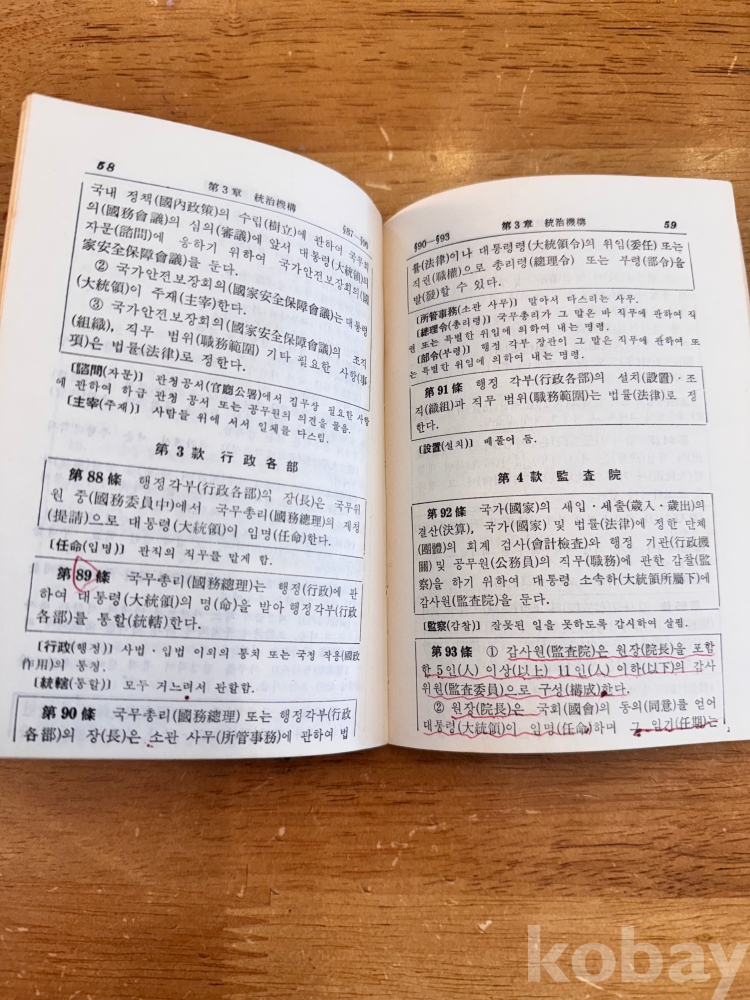 58
第3章 統治機構
§87—§90
국내 정책(國內政策)의 수립(樹立)에 관하여 국무회
의(國務會議)의 심의(審議)에 앞서 대통령(大統領)의
자문(諮問)에 응하기 위하여 국가안전보장회의(國
家安全保障會議)를 둔다.
② 국가안전보장회의(國家安全保障會議)는 대통령
(大統領)이 주재(主宰)한다.
③ 국가안전보장회의(國家安全保障會議)의 조직
(組織), 직무 범위(職務範圍) 기타 필요한 사항(事
項)은 법률(法律)로 정한다.
[諮問(자문)] 관청공서(官廳公署)에서 집무상 필요한 사항
에 관하여 하급 관청 공서 또는 공무원의 의견을 물음.
[主宰(주재)] 사람들 위에 서서 일체를 다스림.
第3款 行政各部
第88條 행정각부(行政各部)의 장(長)은 국무위
원 중(國務委員中)에서 국무총리(國務總理)의 제청
(提請)으로 대통령(大統領)이 임명(任命)한다.
[任命(임명)] 관직의 직무를 맡게 함.
第89條 국무총리(國務總理)는 행정(行政)에 관
하여 대통령(大統領)의 명(命)을 받아 행정각부(行政
各部)를 통할(統轄)한다.
[行政(행정)] 사법·입법 이외의 통치 또는 국정 작용(國政
作用)의 통칭.
[統轄(통할)] 모두 거느려서 관할함.
第90條 국무총리(國務總理) 또는 행정각부(行政
各部)의 장(長)은 소관 사무(所管事務)에 관하여 법
§90—§93
第3章 統治機構
59
률(法律)이나 대통령령(大統領令)의 위임(委任) 또는
직권(職權)으로 총리령(總理令) 또는 부령(部令)을
발(發)할 수 있다.
[所管事務(소관 사무)] 맡아서 다스리는 사무.
[總理令(총리령)] 국무총리가 그 맡은 바 직무에 관하여 직
권 또는 특별한 위임에 의하여 내는 명령.
[部令(부령)] 행정 각부 장관이 그 맡은 직무에 관하여 또
는 특별한 위임에 의하여 내는 명령.
第91條 행정 각부(行政各部)의 설치(設置)·조
직(織組)과 직무 범위(職務範圍)는 법률(法律)로 정
한다.
[設置(설치)] 베풀어 둠.
第4款 監査院
第92條 국가(國家)의 세입·세출(歲入·歲出)의
결산(決算), 국가(國家) 및 법률(法律)에 정한 단체
(團體)의 회계 검사(會計檢査)와 행정 기관(行政機
關) 및 공무원(公務員)의 직무(職務)에 관한 감찰(監
察)을 하기 위하여 대통령 소속하(大統領所屬下)에
감사원(監査院)을 둔다.
[監察(감찰)] 잘못된 일을 못하도록 감시하여 살핌.
第93條 ① 감사원(監査院)은 원장(院長)을 포함
한 5인(人) 이상(以上) 11인(人) 이하(以下)의 감사
위원(監査委員)으로 구성(構成)한다.
② 원장(院長)은 국회(國會)의 동의(同意)를 얻어
대통령(大統領)이 임명(任命)하며 그 임기(任期)는
kobay